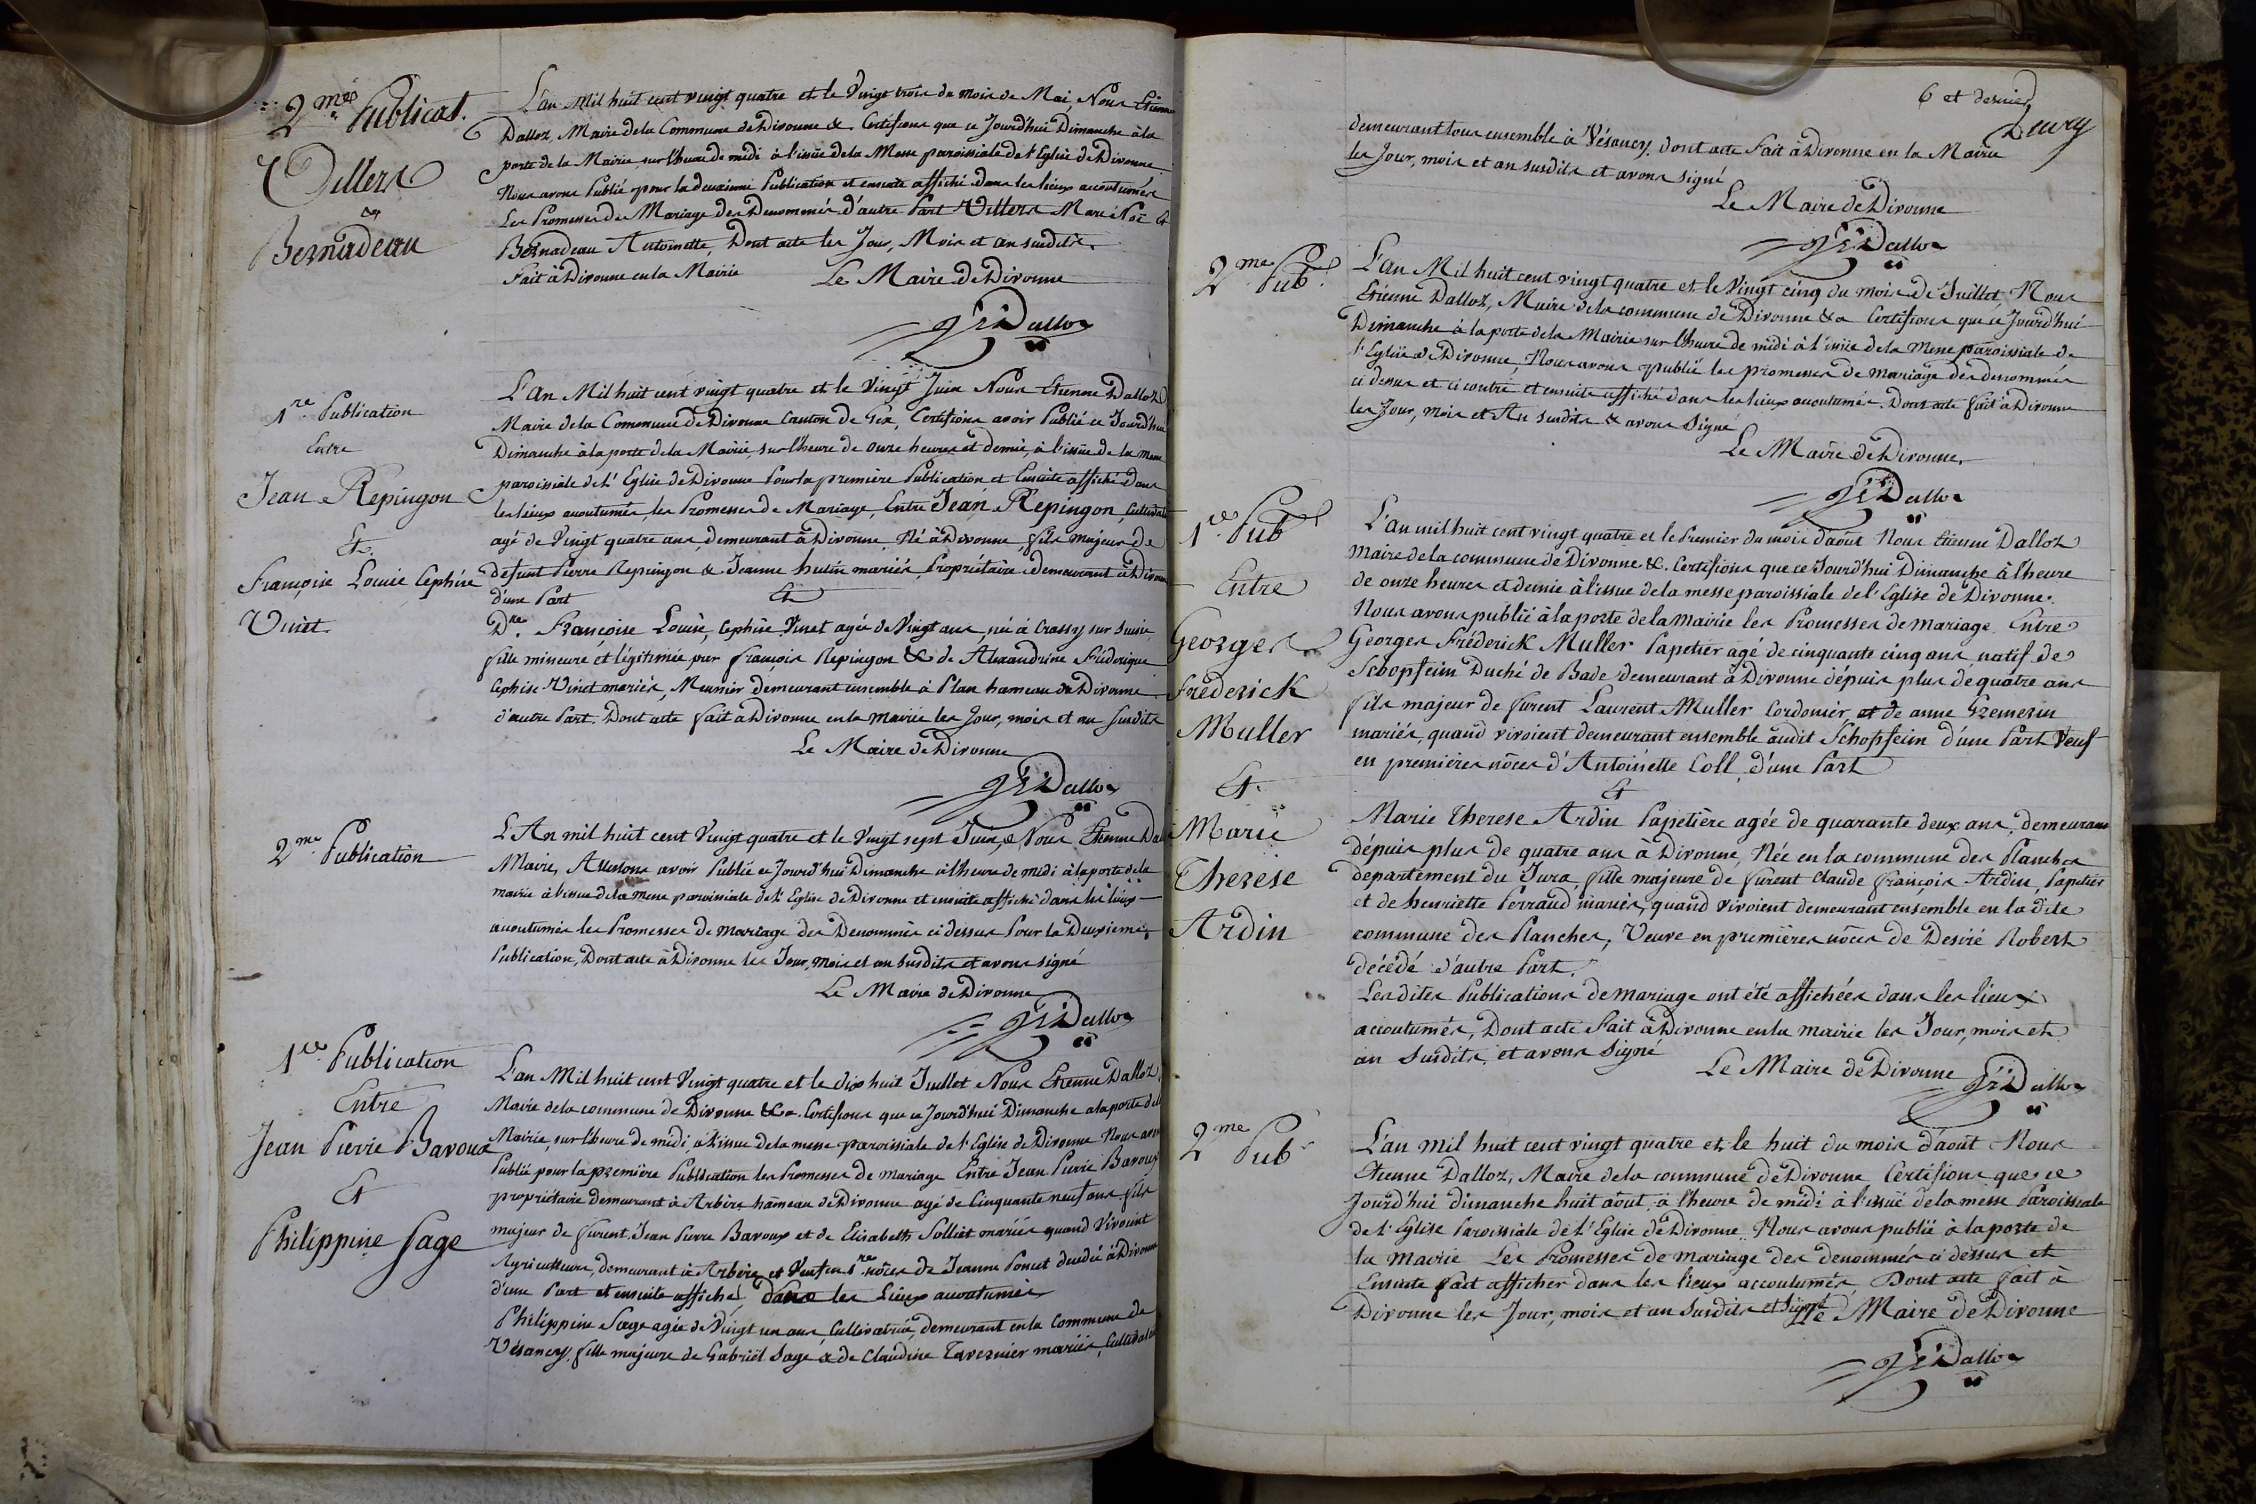 2me Publicat.
Villers
&
Bernadeau
L'an Mil huit cent vingt quatre et le Vingt trois du mois de Mai, Nous Etienne
Dalloz, Maire de la Commune de Divonne &c. Certifions que ce Jourd'hui Dimanche à la
porte de la Mairie, sur l'heure de midi à l'issüe de la Messe paroissiale de l'Eglise de Divonne
Nous avons Publié pour la deuxième Publication et ensuite affiché dans les lieux accoutumés
Les Promesses de Mariage des Denommés d'autre Part Villers Marc Noë &
Bernadeau Antoinette, Dont acte les Jour, Mois et an susdits.
Fait à Divonne en la Mairie Le Maire de Divonne
Dalloz
1re Publication
Entre
Jean Repingon
&
Françoise Louise Cephise
Vinet.
L'An Mil huit cent vingt quatre et le Vingt Juin Nous Etienne Dalloz
Maire de la Commune de Divonne Canton de Gex, Certifions avoir Publié ce Jourd'hui
Dimanche à la porte de la Mairie, sur l'heure de onze heures et demie, à l'issüe de la messe
paroissiale de l'Eglise de Divonne Pour la première Publication et Ensuite affiché Dans
les lieux accoutumés, les Promesses de Mariage, Entre Jean Repingon, Cultivate
agé de Vingt quatre ans, demeurant à Divonne, Né à Divonne, fils majeur de
defunt Pierre Repingon & Jeanne hutin mariés, Propriétaire demeurant à Divonne
d'une Part &
Dlle Françoise Louise, Cephise Vinet agée de Vingt ans, née à Crassy sur Suisse,
fille mineure et légitimée par françois Repingon & de Alexandrine Fréderique
Cephise Vinet mariés, Meunier demeurant ensemble à Plan hameau de Divonne
d'autre Part. Dont acte fait à Divonne en la Mairie les Jour, mois et an susdits
Le Maire de Divonne
Dalloz
2me Publication
L'An mil huit cent Vingt quatre et le Vingt sept Juin, Nous Etienne Da
Maire, Attestons avoir Publié ce Jourd'hui Dimanche à l'heure de midi à la porte de la
mairie à l'issue de la messe paroissiale de l'Eglise de Divonne et ensuite affiché dans les lieux
accoutumés les Promesses de Mariage des Denommés ci dessus Pour la Deuxieme
Publication, Dont acte à Divonne les Jour, mois et an susdits et avons signé
Le Maire de Divonne
Dalloz
1re Publication
Entre
Jean Pierre Bavoux
&
Philippine Sage
L'an Mil huit cent Vingt quatre et le dix huit Juillet Nous Etienne Dalloz
Maire de la commune de Divonne &a. Certifions que ce Jourd'hui Dimanche à la porte de la
Mairie, sur l'heure de midi à l'issue de la messe paroissiale de l'Eglise de Divonne Nous avo
Publié pour la première Publication les Promesses de Mariage Entre Jean Pierre Bavoux
propriétaire demeurant à Arbère hameau de Divonne agé de Cinquante neuf ans fils
majeur de furent Jean Pierre Bavoux et de Elisabeth Solliet mariés quand Vivoient
Agriculteurs, demeurant à Arbère et Veuf en 1res nôces de Jeanne Poncet decedée à Divonne
d'une Part et ensuite affiché dans les Lieux accoutumés
Philippine Sage agée de Vingt un ans, Cultivatrice, demeurant en la Commune de
Vésancy, fille majeure de Gabriël Sage & de Claudine Tavernier mariés, Cultivate
6 et dernier
demeurant tous ensemble à Vésancy. dont acte Fait à Divonne en la Mairie
les Jour, mois et an susdits et avons signé
Le Maire de Divonne
Dalloz
2me Pub.
L'an Mil huit cent vingt quatre et le Vingt cinq du mois de Juillet, Nous
Etienne Dalloz, Maire de la commune de Divonne &a Certifions que ce Jourd'hui
Dimanche à la porte de la Mairie sur l'heure de midi à l'issüe de la Messe paroissiale de
l'Eglise de Divonne, Nous avons publié les promesses de mariage des denommés
ci dessus et ci contre et ensuite affiché dans les lieux accoutumés. Dont acte fait à Divonne
les Jour, mois et An susdits & avons Signé
Le Maire de Divonne.
Dalloz
1re Pub
Entre
Georges
Fréderick
Muller
&
Marie
Therese
Ardin
L'an mil huit cent vingt quatre et le Premier du mois d'aout Nous Etienne Dalloz
Maire de la commune de Divonne &c. Certifions que ce Jourd'hui Dimanche à l'heure
de onze heures et demie à l'issue de la messe paroissiale de l'Eglise de Divonne.
Nous avons publié à la porte de la mairie les Promesses de mariage Entre
Georges Fréderick Muller Papetier agé de cinquante cinq ans natif de
Schopfeim Duché de Bade demeurant à Divonne dépuis plus de quatre ans
fils majeur de furent Laurent Muller Cordonier et de anne Gremerin
mariés, quand vivoient demeurant ensemble audit Schopfeim d'une Part Veuf
en premières nôces d'Antoinette Coll, d'une Part
&
Marie Therese Ardin Papetière agée de quarante deux ans, demeurant
dépuis plus de quatre ans à Divonne, Née en la commune des Planches
departement du Jura, fille majeure de furent Claude françois Ardin, Papetier
et de henriette Perraud mariés, quand vivoient demeurant ensemble en la dite
commune des Planches, Veuve en premières nôces de Desiré Robert
décédé d'autre Part.
Les dites Publications de mariage ont été affichées dans les lieux
accoutumés, Dont acte Fait à Divonne en la mairie les Jour, mois et
an susdits, et avons signé Le Maire de Divonne
Dalloz
2me Pub
L'an mil huit cent vingt quatre et le huit du mois d'aout Nous
Etienne Dalloz, Maire de la commune de Divonne Certifions que ce
Jourd'hui dimanche huit aout, à l'heure de midi à l'issüe de la messe Paroissiale
de l'Eglise Paroissiale de l'Eglise de Divonne. Nous avons publié à la porte de
la Mairie Les Promesses de mariage des denommés ci dessus et
Ensuite fait afficher dans les lieux accoutumés, Dont acte fait à
Divonne les Jour, mois et an susdits et signé Le Maire de Divonne
Dalloz